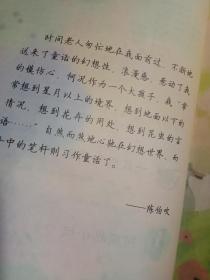 时间老人匆忙地在我面前过，不断地
送来了童话的幻想性、浪漫感，惹动了我
的模仿心，何况作为一个大孩子，我“常
常想到星月以上的境界，想到地面以下的
情况，想到花卉的用处，想到昆虫的言
语……”自然而然地心驰在幻想世界，而
中的笔杆则习作童话了。
——陈伯吹